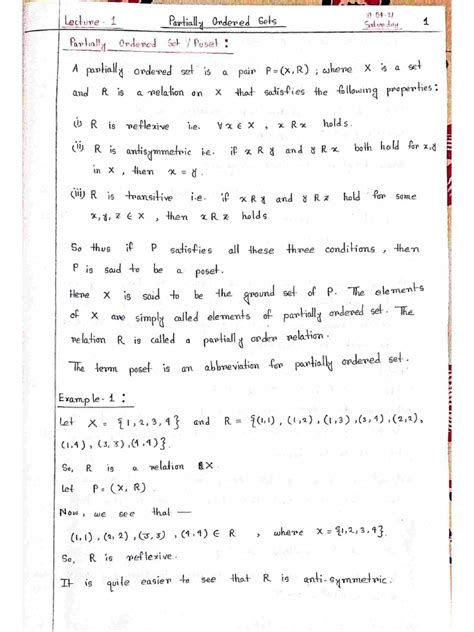 Lecture - 1 Partially Ordered Sets Saturday 1
Partially Ordered Set / Poset :
A partially ordered set is a pair P = (X, R) ; where X is a set
and R is a relation on X that satisfies the following properties :
(i) R is reflexive i.e. ∀ x ∈ X , x R x holds.
(ii) R is antisymmetric i.e. if x R y and y R x both hold for x, y
in X , then x = y .
(iii) R is transitive i.e. if x R y and y R z hold for some
x, y, z ∈ X , then x R z holds
So thus if P satisfies all these three conditions , then
P is said to be a poset .
Here X is said to be the ground set of P. The elements
of X are simply called elements of partially ordered set. The
relation R is called a partially order relation.
The term poset is an abbreviation for partially ordered set .
Example - 1 :
Let X = {1, 2, 3, 4} and R = {(1,1) , (1,2) , (1,3) , (3,4) , (2,2),
(1,4) , (3,3) , (4,4)}.
So, R is a relation X.
Let P = (X, R) .
Now, we see that —
(1,1) , (2,2) , (3,3) , (4,4) ∈ R , where X = {1,2,3,4}.
So, R is reflexive .
It is quite easier to see that R is anti-symmetric.